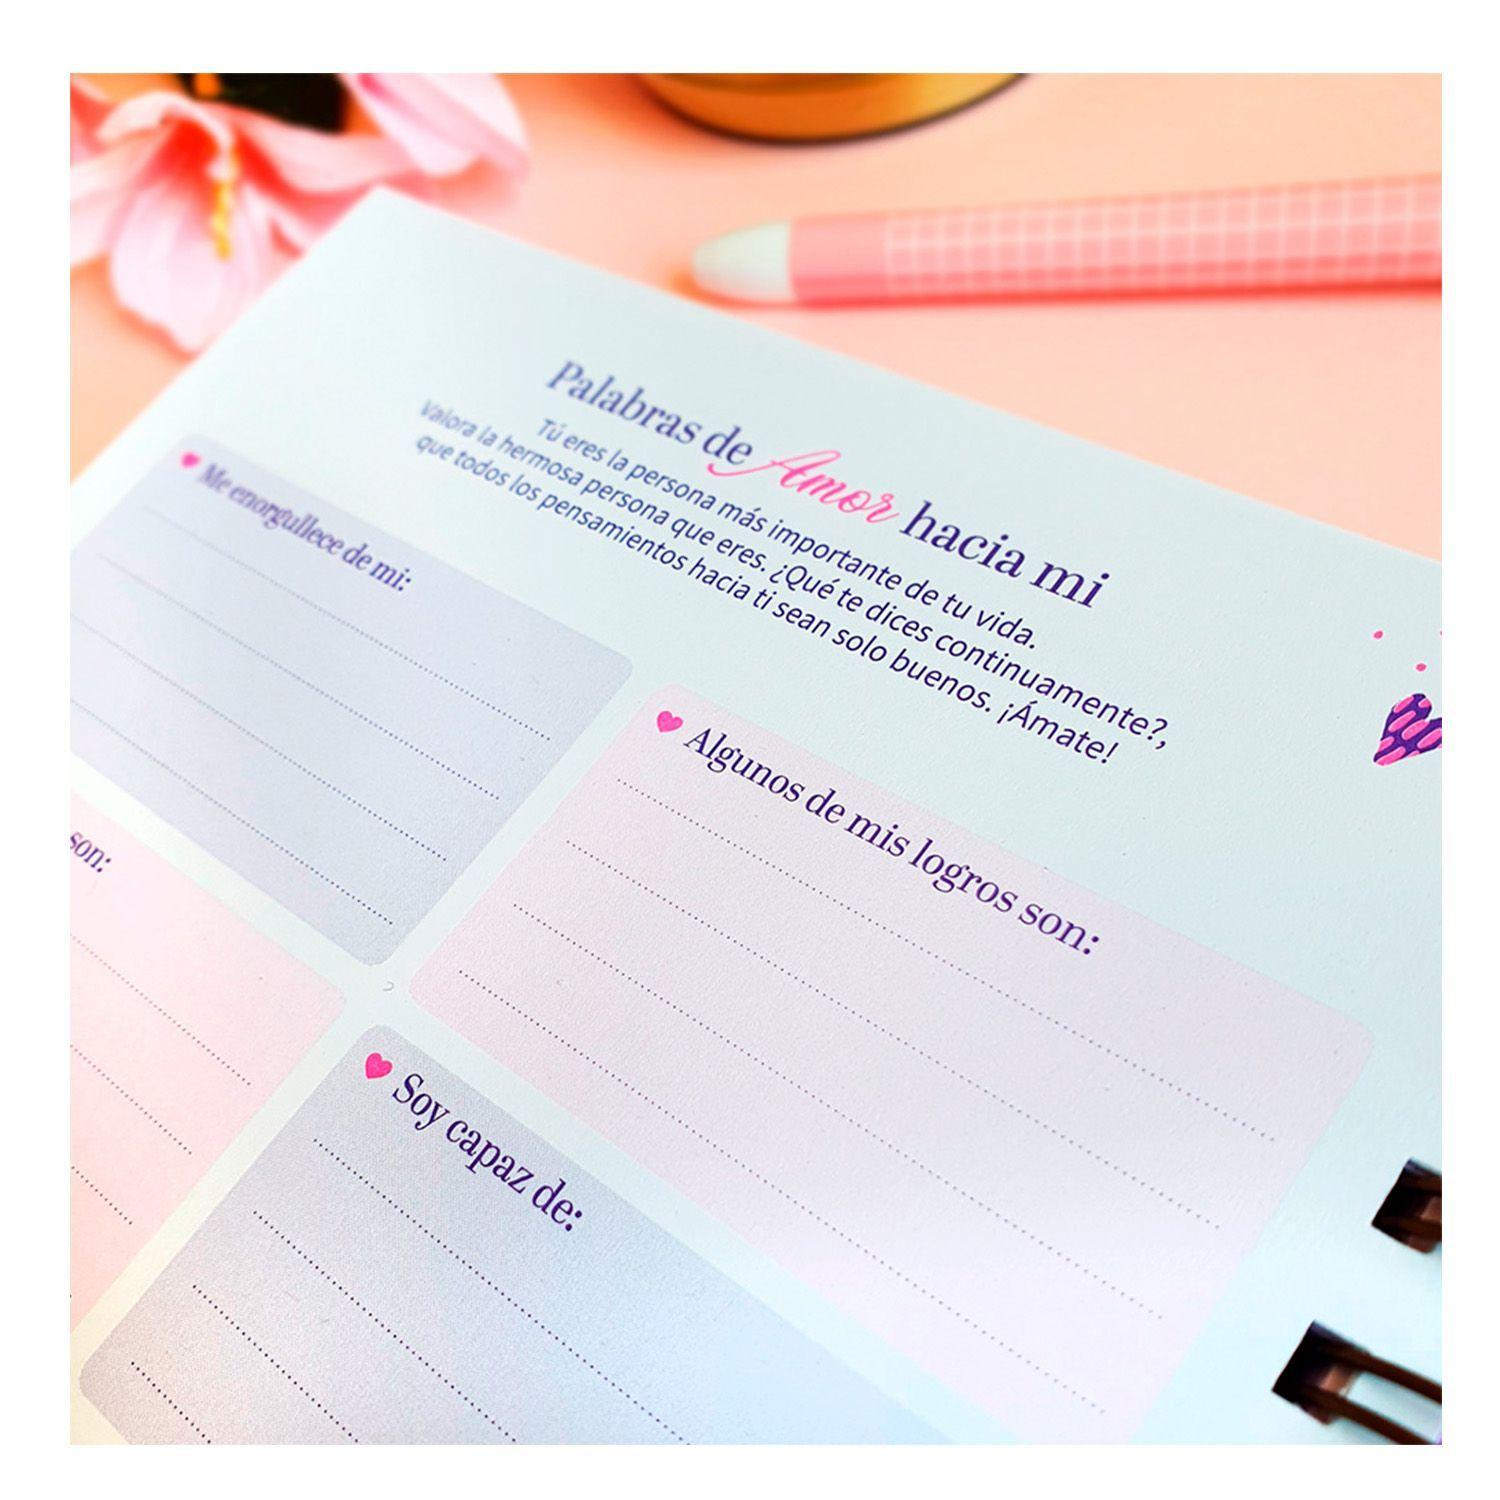 Palabras de Amor hacia mi
Tú eres la persona más importante de tu vida.
Valora la hermosa persona que eres. ¿Qué te dices continuamente?,
que todos los pensamientos hacia ti sean solo buenos. ¡Ámate!
Me enorgullece de mi:
Algunos de mis logros son:
son:
Soy capaz de: